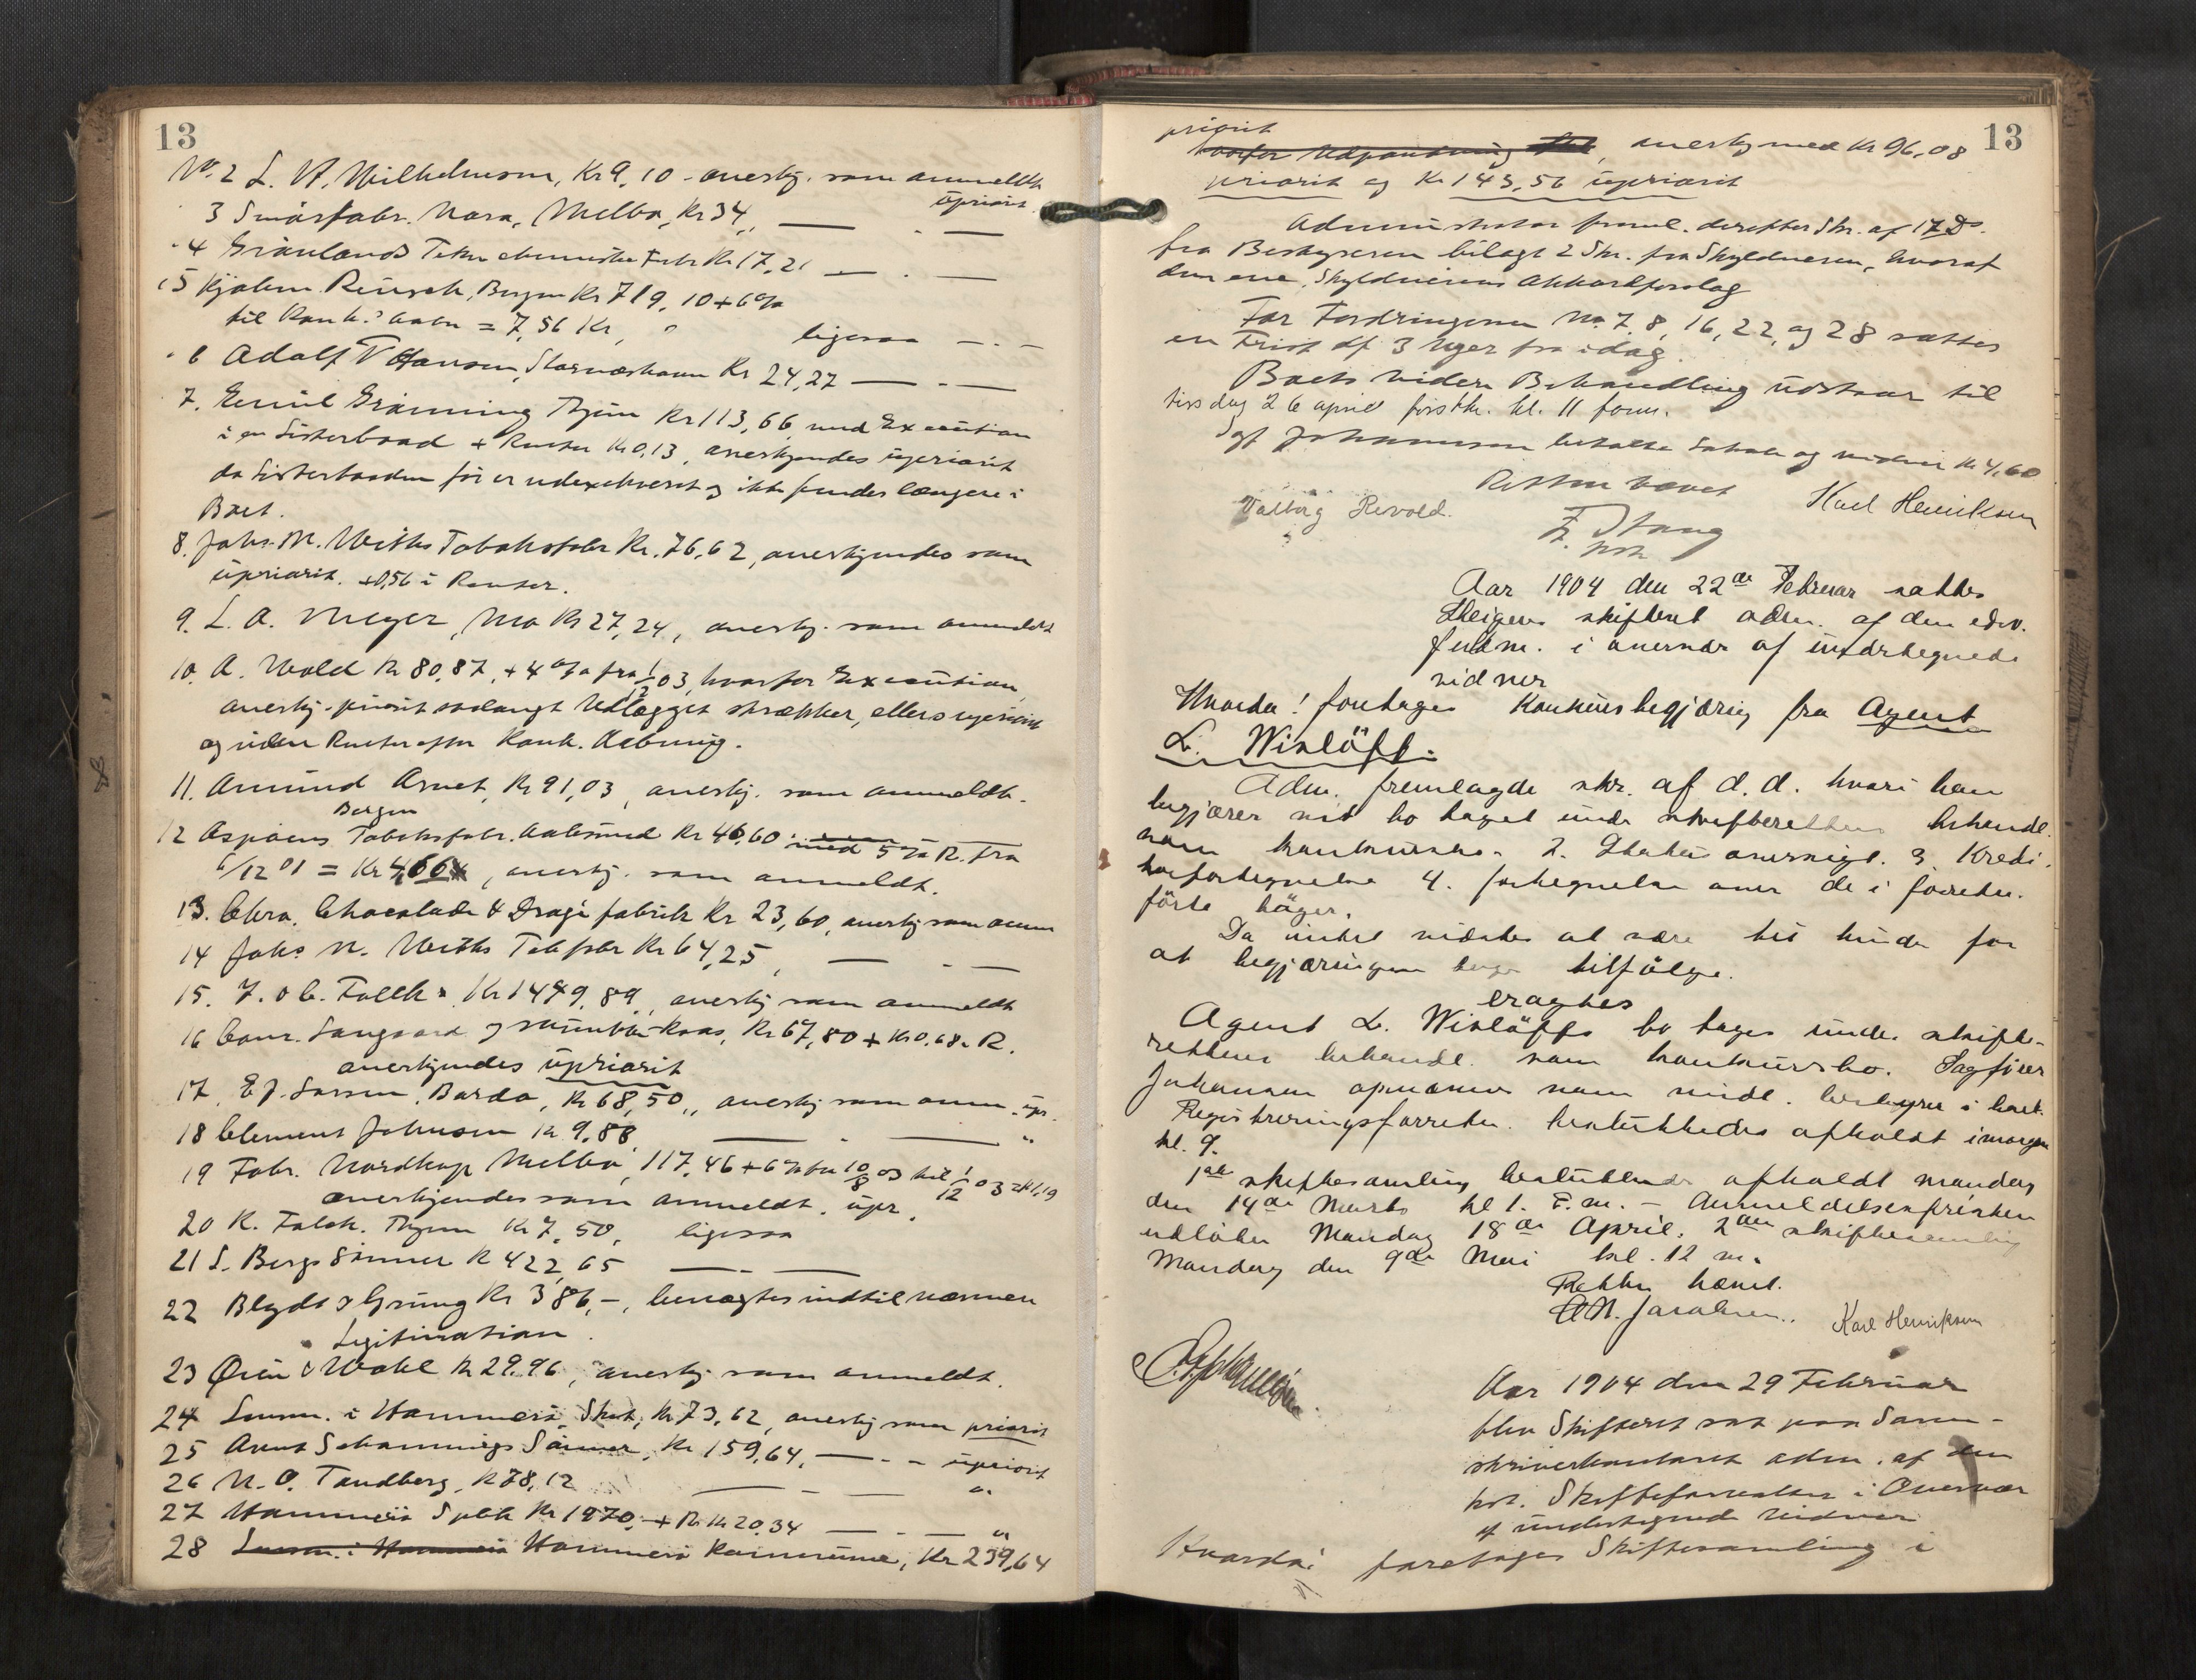 13
No. 2 L. A. Wilhelmsen, Kr 9,10 - anerkj. som anmeldt
upriorit
3 Smörfabr. Nora, Melbo, Kr 34, — " —
4 Grönlands Tekn chemiske Fabr Kr 17,21 — " —
5 Kjölem Reusch, Bergen Kr 719,10 + 6%
til Konk.' = 7,56 Kr, ligesaa — " —
6 Adolf T Hansen, Kr 24,27 — " —
7. Emil Grönning Thjem Kr 113,66 med Execution
i en Listerbaad + Renter Kr 0,13, anerkjendes upriorit
da Listerbaaden før er udexekveret og ikke findes længere i
Boet.
8. Johs. N. Wiiks Tobaksfabr Kr. 76,62, anerkjendes som
upriorit. + 0,56 i Renter.
9. L. A. Meyer, Mo Kr 27,24, anerkj. som anmeldt
10. A. Wold Kr 80,87, + 4% fra 1/12 03, hvorfor Execution,
anerkj. priorit saalangt Udlægget strækker, ellers upriorit
og uden Renter efter Konk. Aabning.
11. Amund Arnet, Kr 91,03, anerkj. som anmeldt.
Bergen
12 Aspöens Tobaksfabr. Kr 46,60 med 5% R. fra
6/12 01 = Kr 4,66, anerkj. som anmeldt.
13. Chra. Chocolade & Drage fabrik Kr 23,60, anerkj som anm
14 Johs N. Wiiks Tobfabr Kr 64,25, — " —
15. J. & C. Falck Kr 1479,89, anerkj som anmeldt
16 Conr. Langaard Kr 67,80 + Kr 0,68. R.
anerkjendes upriorit
17. E J. Larsen, Bardo, Kr 68,50, anerkj som anm. upr.
18 Clement Johnsen Kr 9,88 — " — "
19 Fabr. Nordkap Melbo, 117,46 + 6% fra 10/8 03 til 1/12 03 =
anerkjendes som anmeldt. upr.
20 K. Falch. Thjem Kr 7,50, ligesaa
21 L. Bergs Sönner Kr 422,65 — " —
22 Blydt & Grung Kr 386,-, benægtes indtil nærmere
Legitimation.
23 Öien & Wahl Kr 29,96, anerkj som anmeldt.
24 Lensm. i Hammerö, Skat, Kr 73,62, anerkj som priorit
25 Arent Schannings Sönner, Kr 159,64, — " — upriorit
26 N. O. Tandberg, Kr 78,12 — " — "
27 Hammerö Spbk Kr 1970,- + R. Kr 20,34 — " — "
28 Lensm. i Hammerö Hammerö Kommune, Kr 239,64
13
priorit
hvorfor Udpantning, anerkj med Kr 96,08
priorit og Kr 143,56 upriorit
Administrator freml. derefter Skr. af 17 D.
fra Bestyreren bilagt 2 Skr. fra Skyldneren, hvoraf
den ene, Skyldnerens Akkordforslag
For Fordringerne No. 7, 8, 16, 22, og 28 sattes
en Frist af 3 Uger fra idag.
Boets videre Behandling udstaar til
tirsdag 26 april förstk. kl. 11 form.
Sgf Johannesen betalte Lokale og vidner Kr 4,60
Retten hævet
Valborg Revold. Karl Henriksen
F. Stang
kst
Aar 1904 den 22de Februar sattes
Steigens skifteret adm. af den edsv.
fuldm. i overvær af undertegnede
vidner
Hvorda! foretages Konkursbegjæring fra Agent
L. Winlöff.
Adm. fremlagde skr. af d. d. hvori han
begjærer sit bo taget under skifterettens behandl.
som konkursbo. 2. Status oversigt. 3 Kredi-
torfortegnelse 4. fortegnelse over de i forretn.
förte böger.
Da intet vidstes at være til hinder for
at begjæringen toges tilfölge.
eragtes
Agent L. Winlöffs bo tages under skifte-
rettens behandl. som konkursbo. Sagfører
Johansen opnævnes som midl. bestyrer i boet.
Registreringsforretn. besluttedes afholdt imorgen
kl. 9.
1ste skiftesamling besluttedes afholdt mandag
den 14de Marts kl 1. E.m. — Anmeldelsesfristen
udlöber Mandag 18de April. 2den skiftesamling
Mandag den 9de Mai kl. 12 m.
Retten hævet.
N. Jacobsen. Karl Henriksen
Aar 1904 den 29 Februar
blev Skifteret sat paa Soren-
skriverkontoret adm. af den
kst. Skifteforvalter i Overvær
af undertegnede Vidner
Hvorda: foretages Skiftesamling i